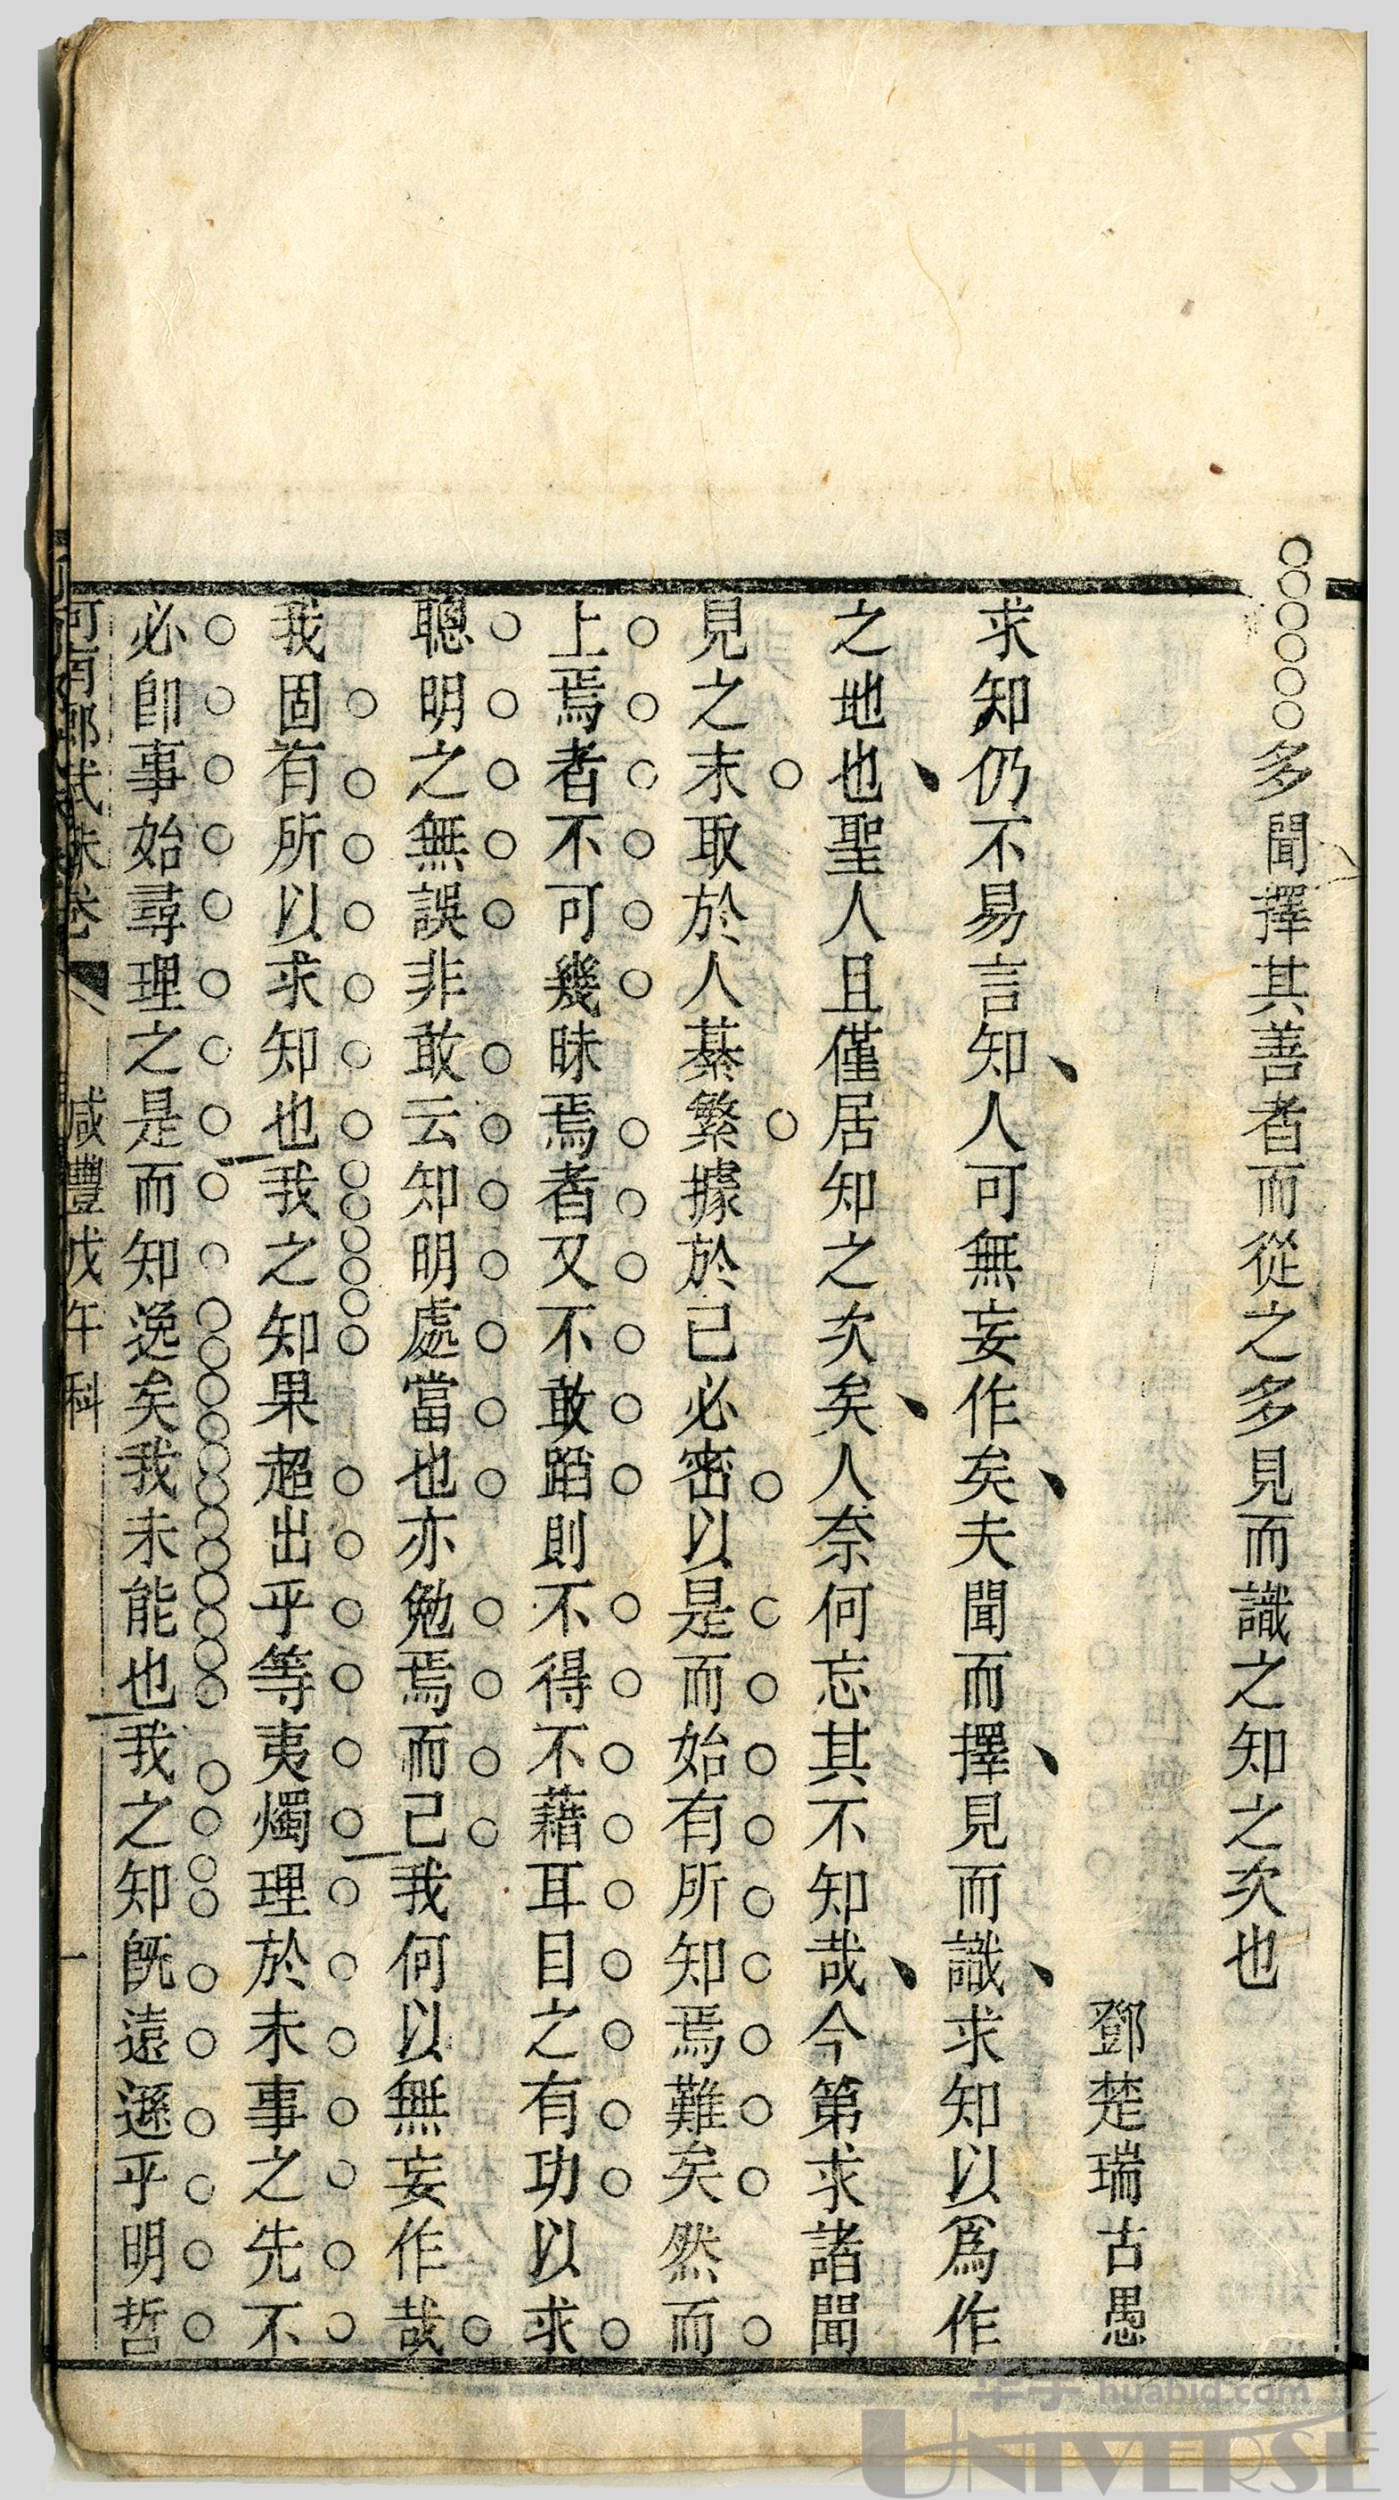 多聞擇其善者而從之多見而識之知之次也
鄧楚瑞古愚
求知仍不易言知人可無妄作矣夫聞而擇見而識求知以爲作
之地也聖人且僅居知之次矣人奈何忘其不知哉今第求諸聞
見之末取於人綦繁據於己必密以是而始有所知焉難矣然而
上焉者不可幾昧焉者又不敢蹈則不得不藉耳目之有功以求
聰明之無誤非敢云知明處當也亦勉焉而已我何以無妄作哉
我固有所以求知也我之知果超出乎等夷燭理於未事之先不
必卽事始尋理之是而知逸矣我未能也我之知旣遠遜乎明哲
河南鄉試硃卷 咸豐戊午科 一
华宇 huabid.com
UNIVERSE